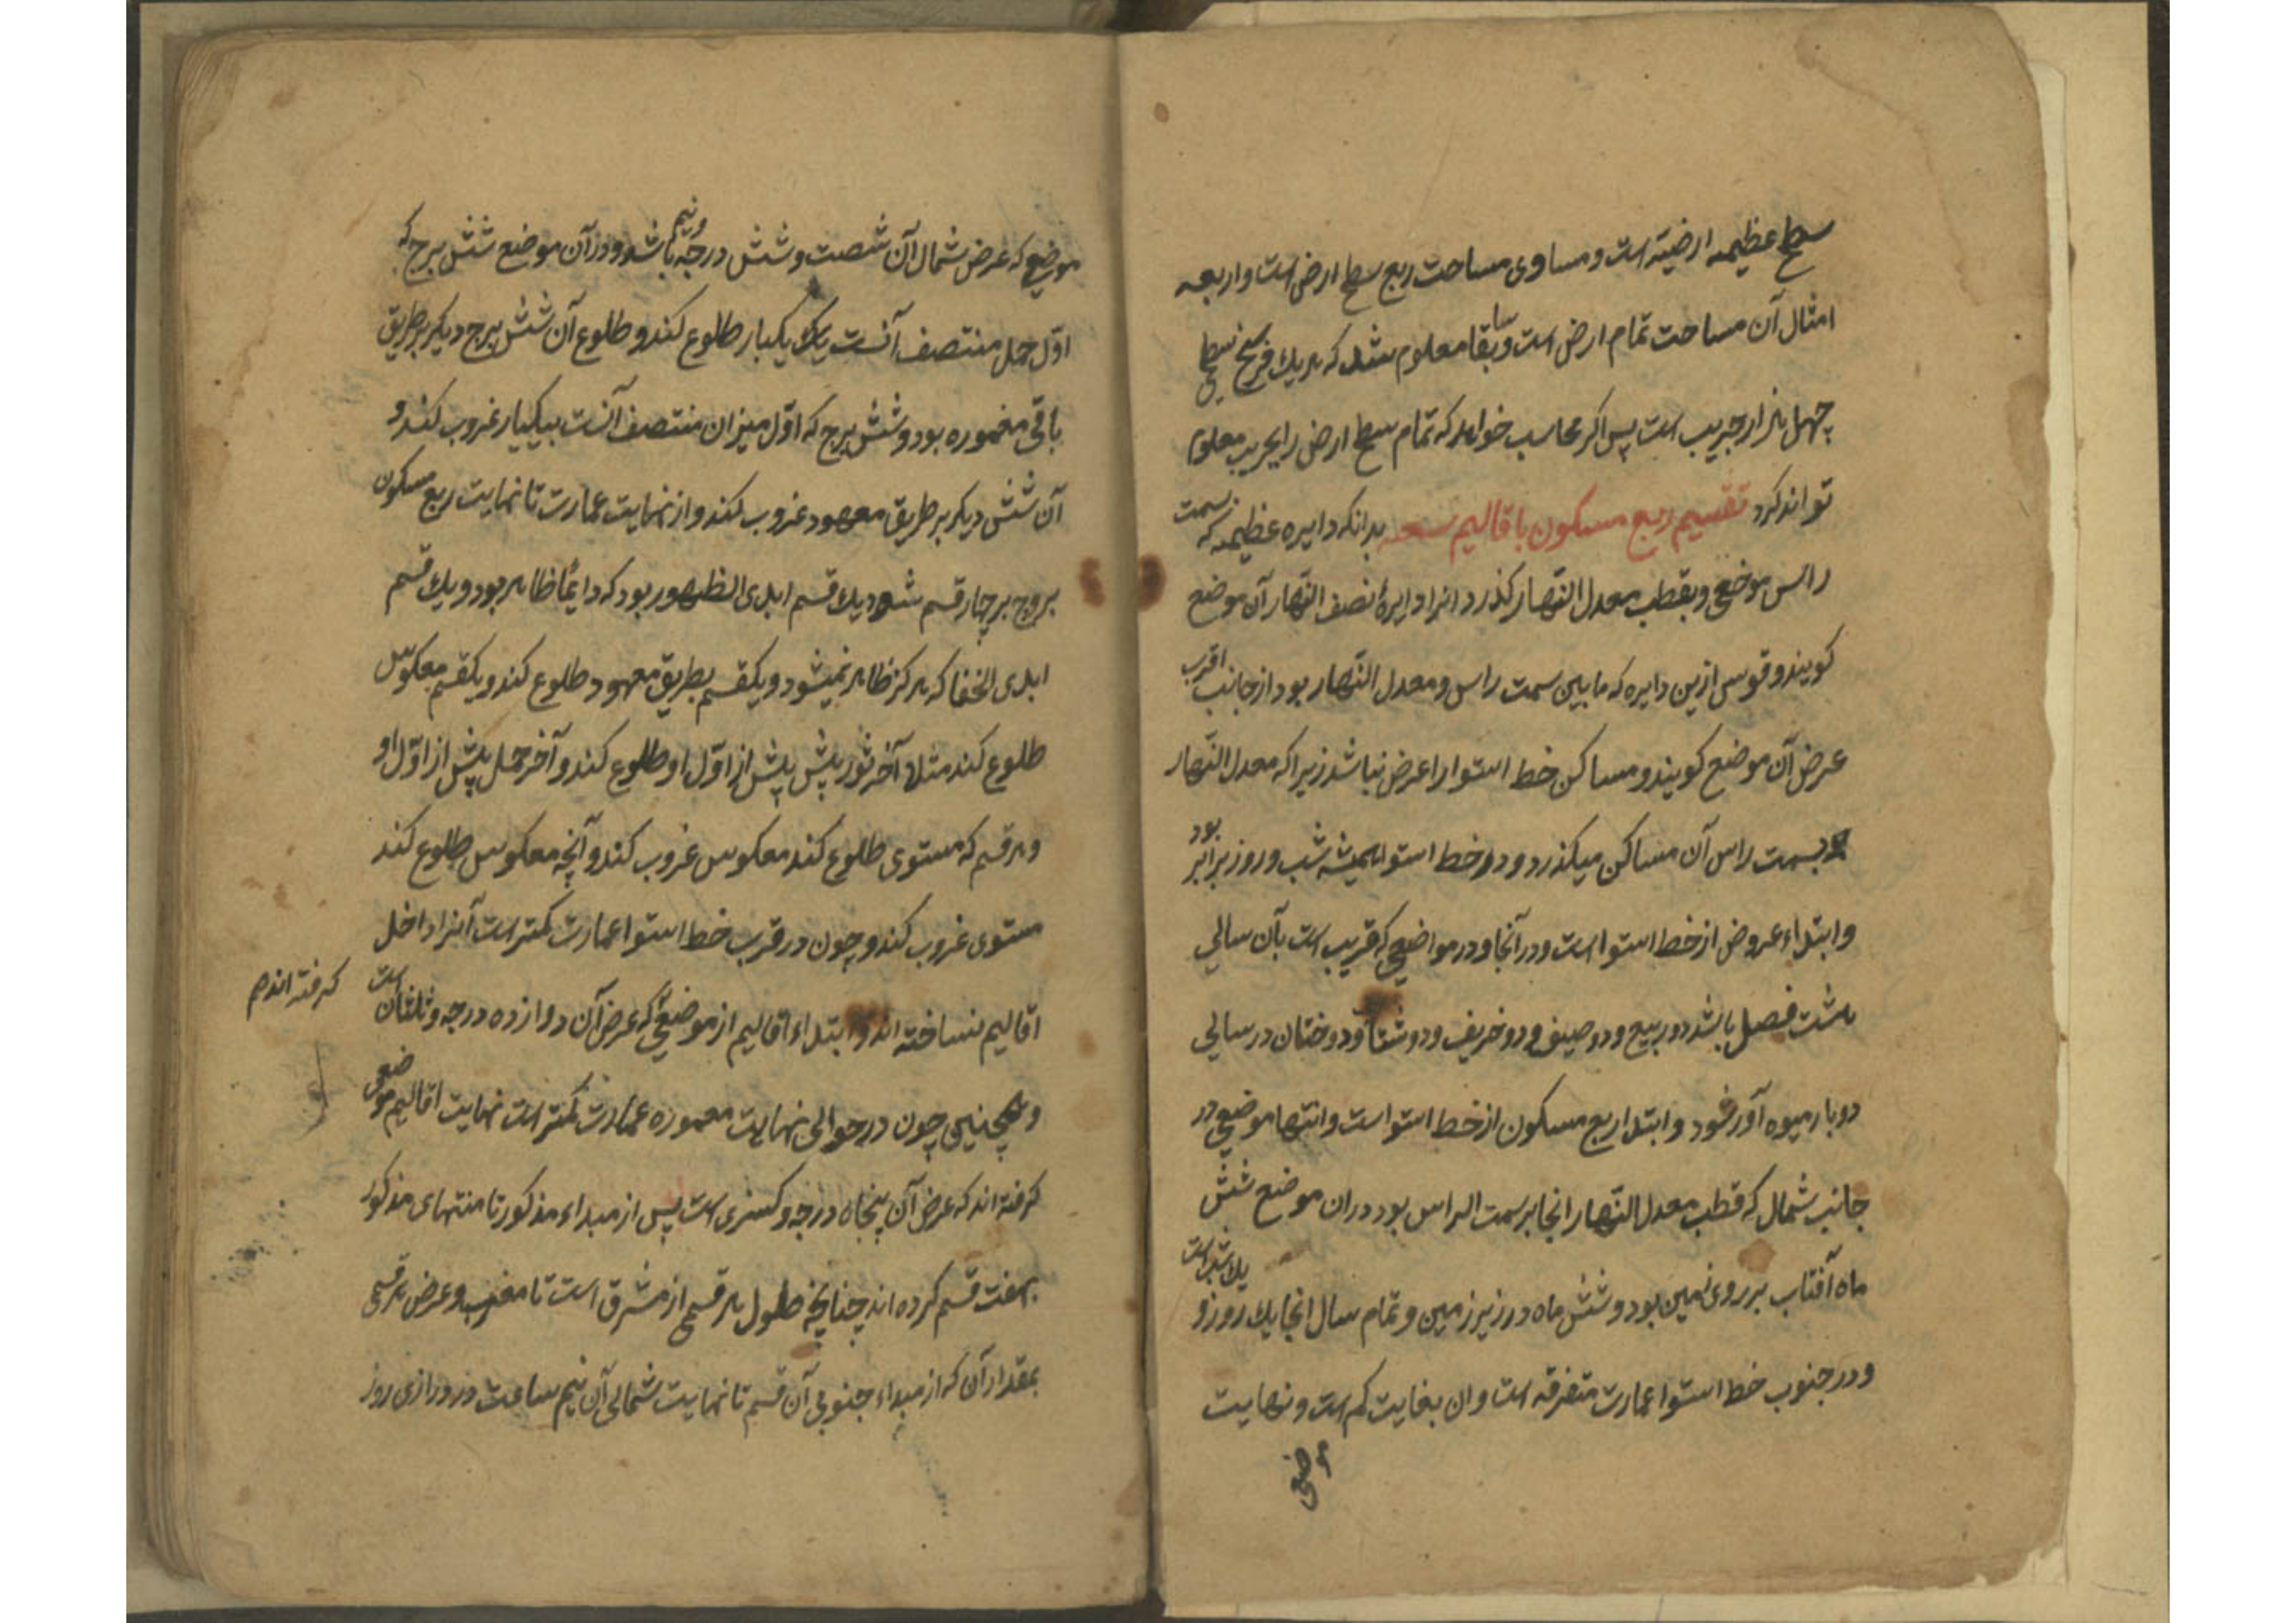 سطح عظیمه ارضیّه است و مساوی مساحت ربع سطح ارض است و اربعه
امثال آن مساحت تمام ارض است و سابقا معلوم شد که هر یک فرسخ سطحی
چهل هزار جریب است پس اکر محاسب خواهد که تمام سطح ارض را بجریب معلوم
تواند کرد تقسیم ربع مسکون باقالیم سبعه بدانکه دایره عظیمه که بسمت
راس موضع و بقطب معدل النهار کذرد انرا دایرهٔ نصف النّهار آن موضع
کویند و قوسی ازین دایره که مابین سمت راس و معدل النّهار بود از جانب اقرب
عرض آن موضع کویند و مساکن خط استوا را عرض نباشد زیرا که معدل النّهار
بسمت راس آن مساکن میکذرد و در خط استوا همیشه شب و روز برابر بود
و ابتداء عروض از خط استوا است و در آنجا و در مواضعی که قریب است بآن سالی
هشت فصل باشد دو ربیع و دو صیف و دو خریف و دو شتا و درختان در سالی
دو بار میوه آور شود و ابتدا ربع مسکون از خط استوا است و انتها موضعی در
جانب شمال که قطب معدل النّهار انجا بر سمت الراس بود دران موضع شش
ماه آفتاب بر روی زمین بود و شش ماه در زیر زمین و تمام سال انجا یک روز و یک شب است
و در جنوب خط استوا عمارت متفرقه است و ان بغایت کم است و نهایت
موضعی که عرض شمال آن شصت و شش درجه و نیم باشد و در آن موضع شش برج که
اوّل حمل منتصف آنست یک یکبار طلوع کند و طلوع آن شش برج دیکر بر طریق
باقی معموره بود و شش برج که اوّل میزان منتصف آنست بیکبار غروب کند و
آن شش دیکر بر طریق معهود غروب کند و از نهایت عمارت تا نهایت ربع مسکون
بروج بر چهار قسم شود یک قسم ابدی الظهور بود که دایمًا ظاهر بود و یک قسم
ابدی الخفا که هرکز ظاهر نمیشود و یکقسم بطریق معهود طلوع کند و یکقسم معکوس
طلوع کند مثلا آخر ثور پیش پیش از اوّل او طلوع کند و آخر حمل پیش از اوّل او
و هر قسم که مستوی طلوع کند معکوس غروب کند و آنچه معکوس طلوع کند
مستوی غروب کند و چون در قرب خط استوا عمارت کمتر است آنرا داخل
اقالیم نساخته اند و ابتداء اقالیم از موضعی که عرض آن دوازده درجه و ثلثان است
کرفته اند
و همچنین چون در حوالی نهایت معموره عمارت کمتر است نهایت اقالیم موضعی
کرفته اند که عرض آن پنجاه درجه و کسری است پس از مبداء مذکور تا منتهای مذکور
بهفت قسم کرده اند چنانچه طول هر قسمی از مشرق است تا مغرب و عرض هر قسمی
بمقدار آن که از مبداء جنوبی آن قسم تا نهایت شمالی آن نیم ساعت در درازی روز